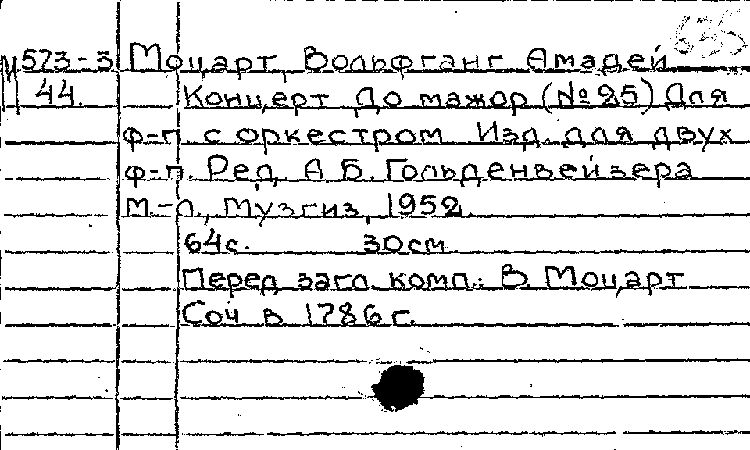 635
М 573-3 Моцарт, Вольфганг Амадей
44. Концерт До мажор (№ 25) Для
ф-п. с оркестром. Изд. для двух
ф-п. Ред. А.Б. Гольденвейзера
М.-Л., Музгиз, 1952.
64с. 30см.
Перед загл. комп.: В. Моцарт
Соч. в 1786 г.